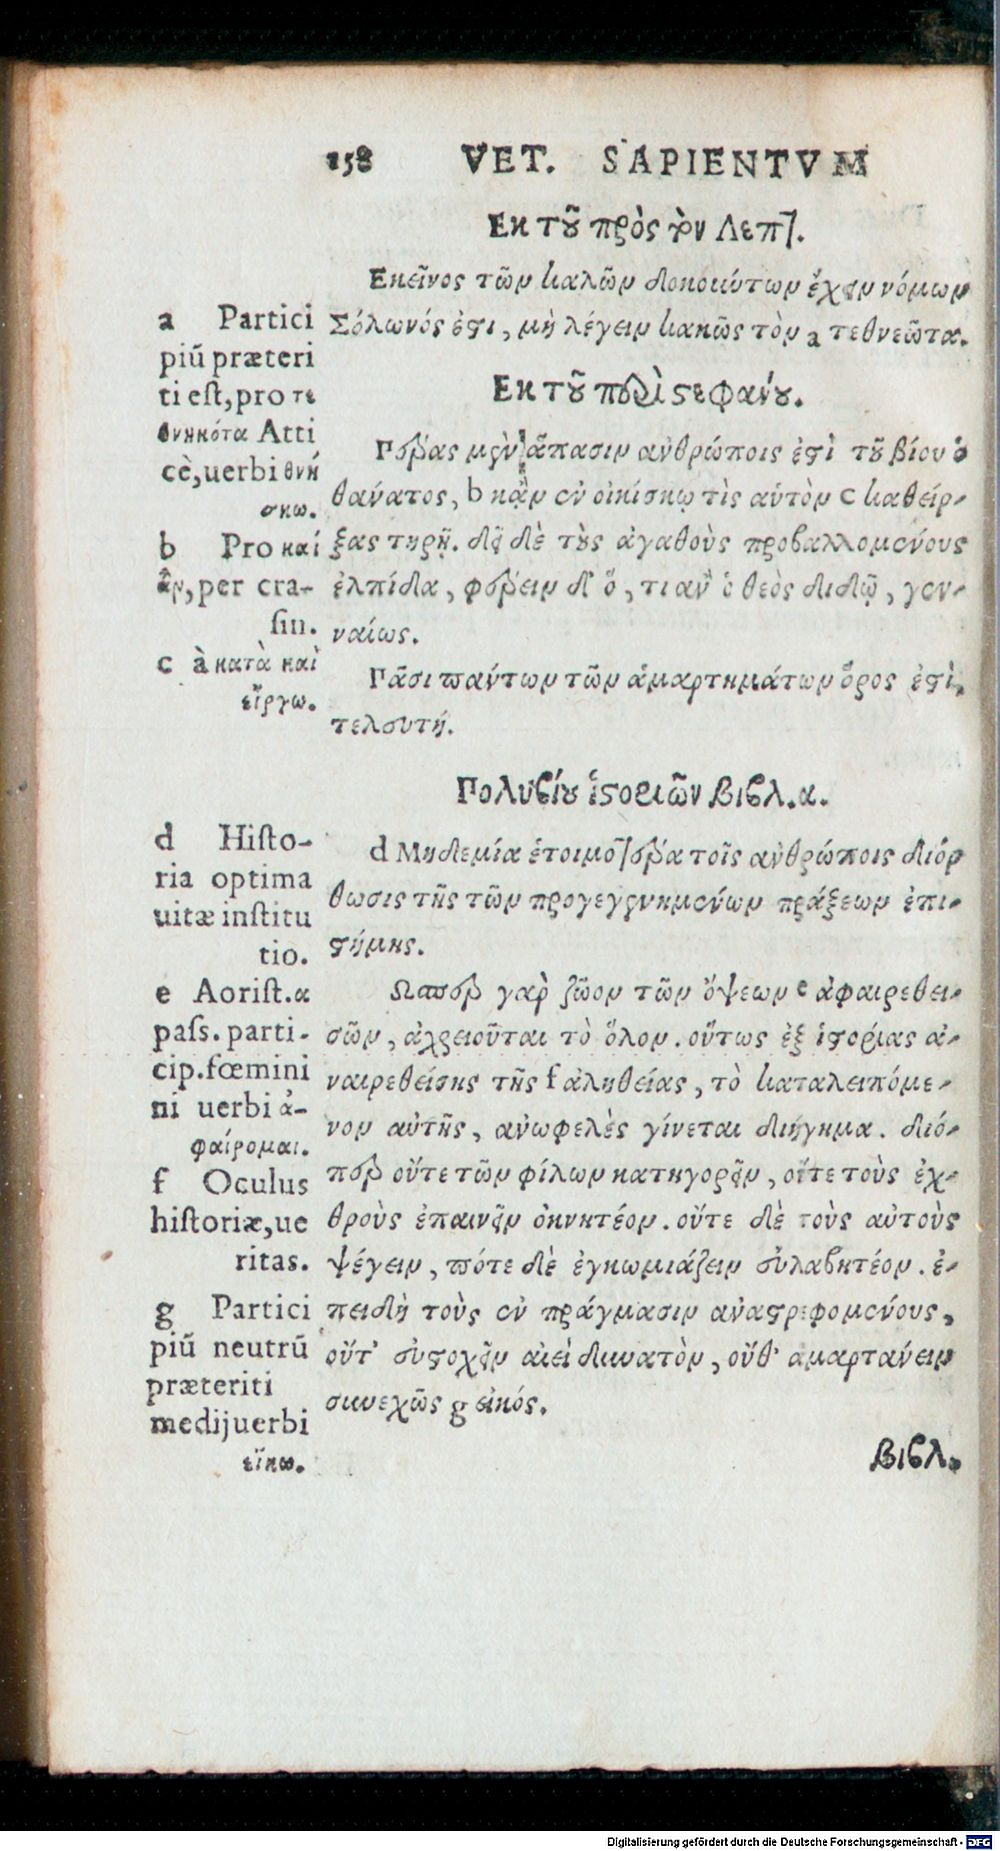 158 VET. SAPIENTVM
Ἐκ τοῦ πρὸς τὸν Λεπτ.
Ἐκεῖνος τῶν καλῶν δοκούντων ἔχειν νόμων
Σόλωνός ἐστι, μὴ λέγειν κακῶς τὸν a τεθνεῶτα.
Ἐκ τοῦ περὶ στεφάνου.
Πέρας μὲν ἅπασιν ἀνθρώποις ἐστὶ τοῦ βίου ὁ
θάνατος, b κἂν ἐν οἰκίσκῳ τὶς αὑτὸν c καθείρ-
ξας τηρῇ. δεῖ δὲ τοὺς ἀγαθοὺς προβαλλομένους
ἐλπίδα, φέρειν δ' ὅ, τι ἂν ὁ θεὸς διδῷ, γεν-
ναίως.
Πᾶσι πάντων τῶν ἁμαρτημάτων ὅρος ἐστὶ,
τελευτή.
Πολυβίου ἱστοριῶν βιβλ. α.
d Μηδεμία ἑτοιμοτέρα τοῖς ἀνθρώποις διόρ
θωσις τῆς τῶν προγεγενημένων πράξεων ἐπι-
στήμης.
Ὥσπερ γὰρ ζῶον τῶν ὄψεων e ἀφαιρεθει-
σῶν, ἀχρειοῦται τὸ ὅλον. οὕτως ἐξ ἱστορίας ἀ-
ναιρεθείσης τῆς f ἀληθείας, τὸ καταλειπόμε-
νον αὐτῆς, ἀνωφελὲς γίνεται διήγημα. διό-
περ οὔτε τῶν φίλων κατηγορεῖν, οὔτε τοὺς ἐχ-
θροὺς ἐπαινεῖν ὀκνητέον. οὔτε δὲ τοὺς αὐτοὺς
ψέγειν, πότε δὲ ἐγκωμιάζειν εὐλαβητέον. ἐ-
πειδὴ τοὺς ἐν πράγμασιν ἀναστρεφομένους,
οὔτ' εὐστοχεῖν αἰεὶ δυνατὸν, οὔθ' ἁμαρτάνειν
συνεχῶς g εἰκός.
βιβλ.
a Partici
piũ præteri
ti est, pro τε
θνηκότα Atti
cè, uerbi θνή
σκω.
b Pro καί
ἂν, per cra-
sin.
c à κατὰ καὶ
εἴργω.
d Histo-
ria optima
uitæ institu
tio.
e Aorist. α
pass. parti-
cip. fœmini
ni uerbi ἀ-
φαίρομαι.
f Oculus
historiæ, ue
ritas.
g Partici
piũ neutrũ
præteriti
medij uerbi
εἴκω.
Digitalisierung gefördert durch die Deutsche Forschungsgemeinschaft - DFG